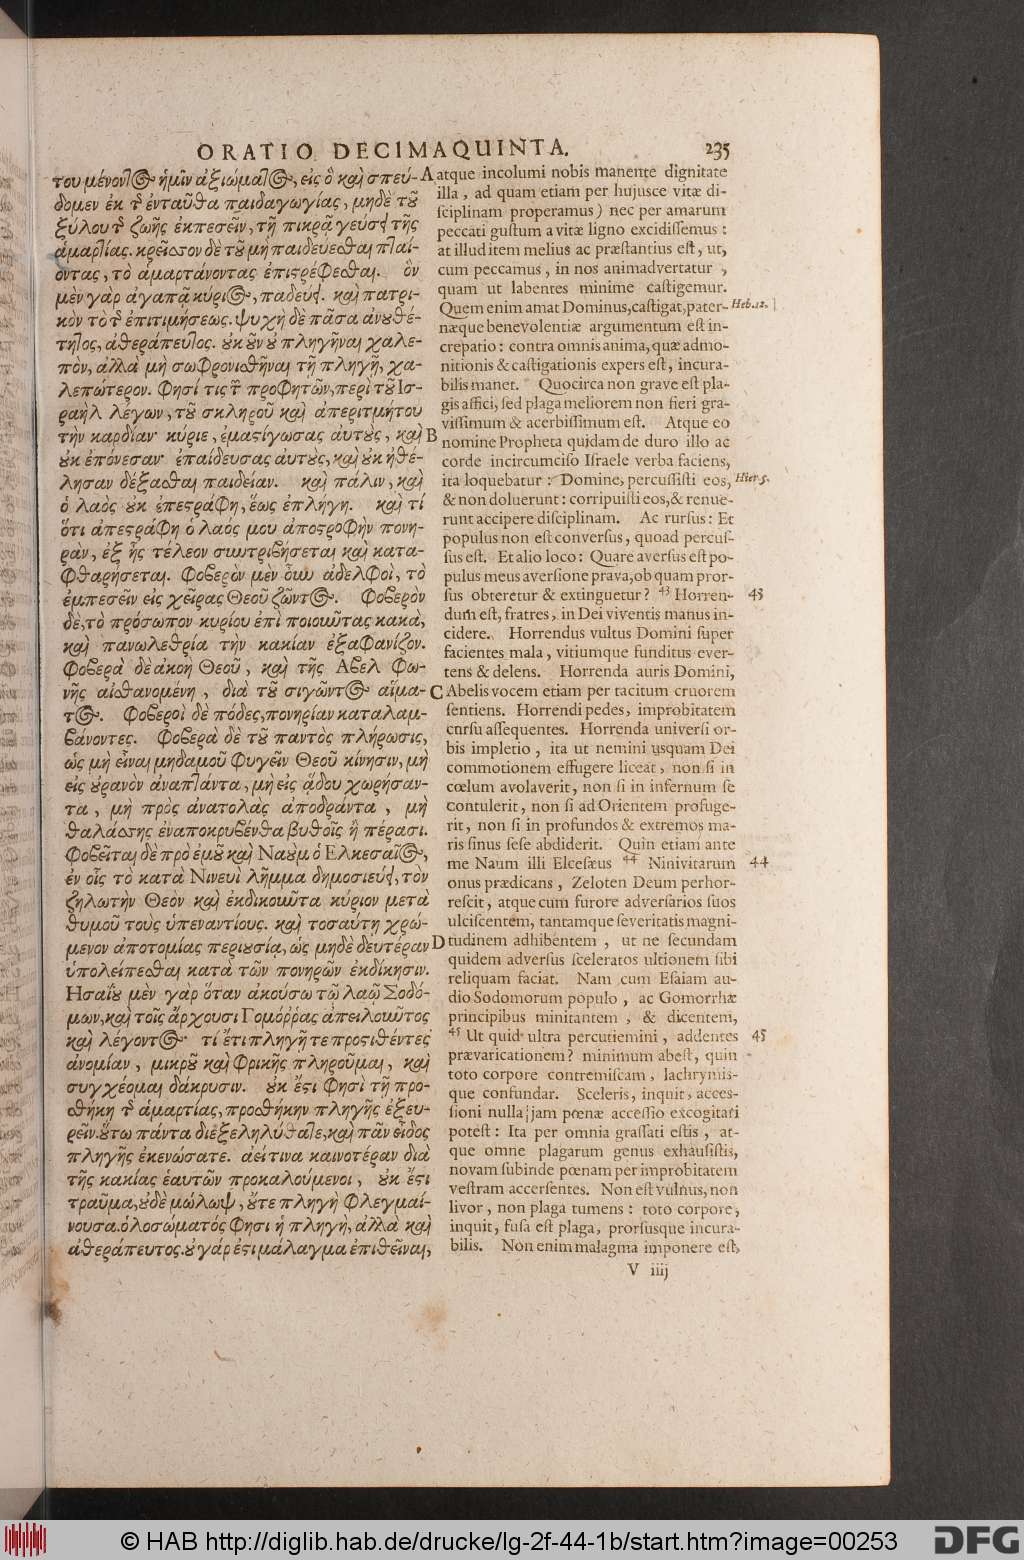 ORATIO DECIMAQUINTA. 235
του μένοντος ἡμῖν ἀξιώματος, εἰς ὃ καὶ σπεύ-
δομεν ἐκ τῆς ἐνταῦθα παιδαγωγίας, μηδὲ τοῦ
ξύλου τῆς ζωῆς ἐκπεσεῖν, τῇ πικρᾷ γεύσει τῆς
ἁμαρτίας. κρεῖσσον δὲ τοῦ μὴ παιδεύεσθαι πταί-
οντας, τὸ ἁμαρτάνοντας ἐπιστρέφεσθαι. ὃν
μὲν γὰρ ἀγαπᾷ κύριος, παδεύει. καὶ πατρι-
κὸν τὸ τῆς ἐπιτιμήσεως. ψυχὴ δὲ πᾶσα ἀνουθέ-
τητος, ἀθεράπευτος. οὐκοῦν οὐ πληγῆναι χαλε-
πὸν, ἀλλὰ μὴ σωφρονισθῆναι τῇ πληγῇ, χα-
λεπώτερον. Φησί τις τῶν προφητῶν, περὶ τοῦ Ισ-
ραὴλ λέγων, τοῦ σκληροῦ καὶ ἀπεριτμήτου
τὴν καρδίαν· κύριε, ἐμαστίγωσας αὐτοὺς, καὶ
οὐκ ἐπόνεσαν· ἐπαίδευσας αὐτοὺς, καὶ οὐκ ἠθέ-
λησαν δέξασθαι παιδείαν. καὶ πάλιν, καὶ
ὁ λαὸς οὐκ ἐπεστράφη, ἕως ἐπλήγη. καὶ τί
ὅτι ἀπεστράφη ὁ λαός μου ἀποστροφὴν πονη-
ρὰν, ἐξ ἧς τέλεον συντριβήσεται καὶ κατα-
φθαρήσεται. Φοβερὸν μὲν οὖν ἀδελφοὶ, τὸ
ἐμπεσεῖν εἰς χεῖρας Θεοῦ ζῶντος. Φοβερὸν
δὲ, τὸ πρόσωπον κυρίου ἐπὶ ποιοῦντας κακὰ,
καὶ πανωλεθρία τὴν κακίαν ἐξαφανίζον.
Φοβερὰ δὲ ἀκοὴ Θεοῦ, καὶ τῆς Αβελ φω-
νῆς αἰσθανομένη, διὰ τοῦ σιγῶντος αἵμα-
τος. Φοβεροὶ δὲ πόδες, πονηρίαν καταλαμ-
βάνοντες. Φοβερὰ δὲ τοῦ παντὸς πλήρωσις,
ὡς μὴ εἶναι μηδαμοῦ φυγεῖν Θεοῦ κίνησιν, μὴ
εἰς οὐρανὸν ἀναπτάντα, μὴ εἰς ᾅδου χωρήσαν-
τα, μὴ πρὸς ἀνατολὰς ἀποδράντα, μὴ
θαλάσσης ἐναποκρυβένθα βυθοῖς ἢ πέρασι.
Φοβεῖται δὲ πρὸ ἐμοῦ καὶ Ναοὺμ ὁ Ελκεσαῖος,
ἐν οἷς τὸ κατὰ Νινευὶ λῆμμα δημοσιεύει, τὸν
ζηλωτὴν Θεὸν καὶ ἐκδικοῦντα κύριον μετὰ
θυμοῦ τοὺς ὑπεναντίους. καὶ τοσαύτῃ χρώ-
μενον ἀποτομίας περιουσίᾳ, ὡς μηδὲ δευτέραν
ὑπολείπεσθαι κατὰ τῶν πονηρῶν ἐκδίκησιν.
Ησαΐου μὲν γὰρ ὅταν ἀκούσω τῷ λαῷ Σοδό-
μων, καὶ τοῖς ἄρχουσι Γομόῤῥας ἀπειλοῦντος
καὶ λέγοντος· τί ἔτι πληγῆτε προστιθέντες
ἀνομίαν, μικροῦ καὶ φρικῆς πληροῦμαι, καὶ
συγχέομαι δάκρυσιν. οὐκ ἔστι φησὶ τῇ προ-
σθήκῃ τῆς ἁμαρτίας, προσθήκην πληγῆς ἐξευ-
ρεῖν. οὕτω πάντα διεξεληλύθατε, καὶ πᾶν εἶδος
πληγῆς ἐκενώσατε. ἀεί τινα καινοτέραν διὰ
τῆς κακίας ἑαυτῶν προκαλούμενοι, οὐκ ἔστι
τραῦμα, οὐδὲ μώλωψ, οὔτε πληγὴ φλεγμαί-
νουσα. ὁλοσώματός φησι ἡ πληγὴ, ἀλλὰ καὶ
ἀθεράπευτος. οὐ γάρ ἐστι μάλαγμα ἐπιθεῖναι,
A atque incolumi nobis manente dignitate
illa, ad quam etiam per hujusce vitæ di-
sciplinam properamus) nec per amarum
peccati gustum a vitæ ligno excidissemus:
at illud item melius ac præstantius est, ut,
cum peccamus, in nos animadvertatur,
quam ut labentes minime castigemur.
Quem enim amat Dominus, castigat, pater- Heb. 12.
næque benevolentiæ argumentum est in-
crepatio: contra omnis anima, quæ admo-
nitionis & castigationis expers est, incura-
bilis manet. Quocirca non grave est pla-
gis affici, sed plaga meliorem non fieri gra-
vissimum & acerbissimum est. Atque eo
B nomine Propheta quidam de duro illo ac
corde incircumciso Israele verba faciens,
ita loquebatur: Domine, percussisti eos, Hier. 5.
& non doluerunt: corripuisti eos, & renue-
runt accipere disciplinam. Ac rursus: Et
populus non est conversus, quoad percus-
sus est. Et alio loco: Quare aversus est po-
pulus meus aversione prava, ob quam pror-
sus obteretur & extinguetur? 43 Horren- 43
dum est, fratres, in Dei viventis manus in-
cidere. Horrendus vultus Domini super
facientes mala, vitiumque funditus ever-
tens & delens. Horrenda auris Domini,
C Abelis vocem etiam per tacitum cruorem
sentiens. Horrendi pedes, improbitatem
cursu assequentes. Horrenda universi or-
bis impletio, ita ut nemini usquam Dei
commotionem effugere liceat, non si in
cœlum avolaverit, non si in infernum se
contulerit, non si ad Orientem profuge-
rit, non si in profundos & extremos ma-
ris sinus sese abdiderit. Quin etiam ante
me Naum illi Elcesæus 44 Ninivitarum 44
onus prædicans, Zeloten Deum perhor-
rescit, atque cum furore adversarios suos
ulciscentem, tantamque severitatis magni-
D tudinem adhibentem, ut ne secundam
quidem adversus sceleratos ultionem sibi
reliquam faciat. Nam cum Esaiam au-
dio Sodomorum populo, ac Gomorrhæ
principibus minitantem, & dicentem,
45 Ut quid ultra percutiemini, addentes 45
prævaricationem? minimum abest, quin
toto corpore contremiscam, lachrymis-
que confundar. Sceleris, inquit, acces-
sioni nulla jam pœnæ accessio excogitari
potest: Ita per omnia grassati estis, at-
que omne plagarum genus exhausistis,
novam subinde pœnam per improbitatem
vestram accersentes. Non est vulnus, non
livor, non plaga tumens: toto corpore,
inquit, fusa est plaga, prorsusque incura-
bilis. Non enim malagma imponere est,
V iiij
© HAB http://diglib.hab.de/drucke/lg-2f-44-1b/start.htm?image=00253
DFG